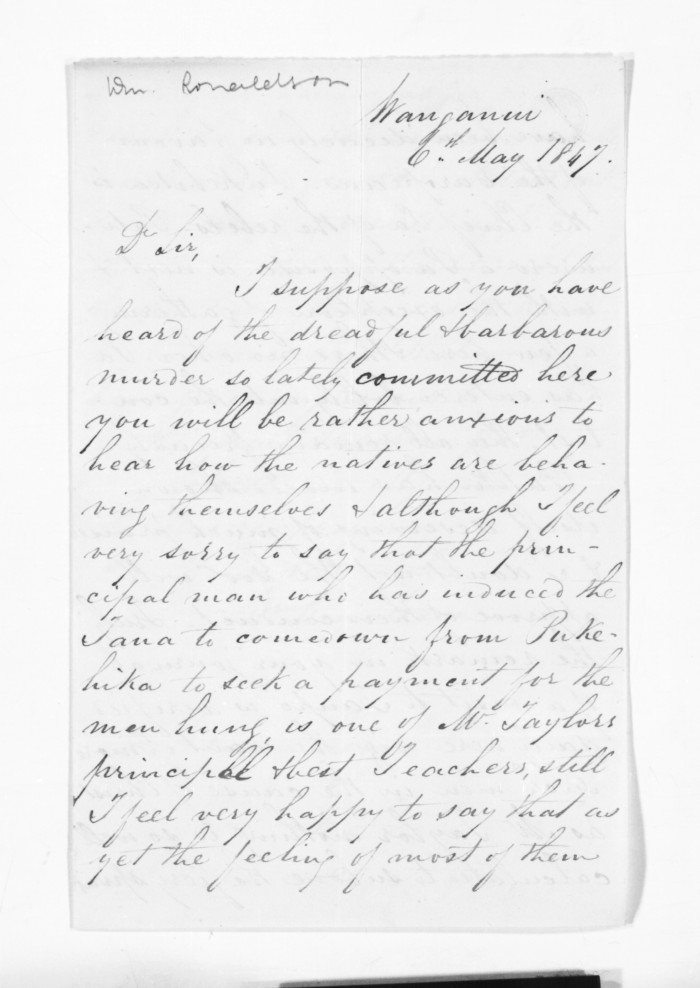 Wm. Ronaldson
Wanganui
6th May 1847.
Dr Sir,
I suppose as you have
heard of the dreadful & barbarous
murder so lately committed here
you will be rather anxious to
hear how the natives are beha-
ving themselves & although I feel
very sorry to say that the prin-
cipal man who has induced the
Taua to come down from Puke-
hika to seek a payment for the
men hung, is one of Mr. Taylors
principall & best Teachers, still
I feel very happy to say that as
yet the feeling of most of them